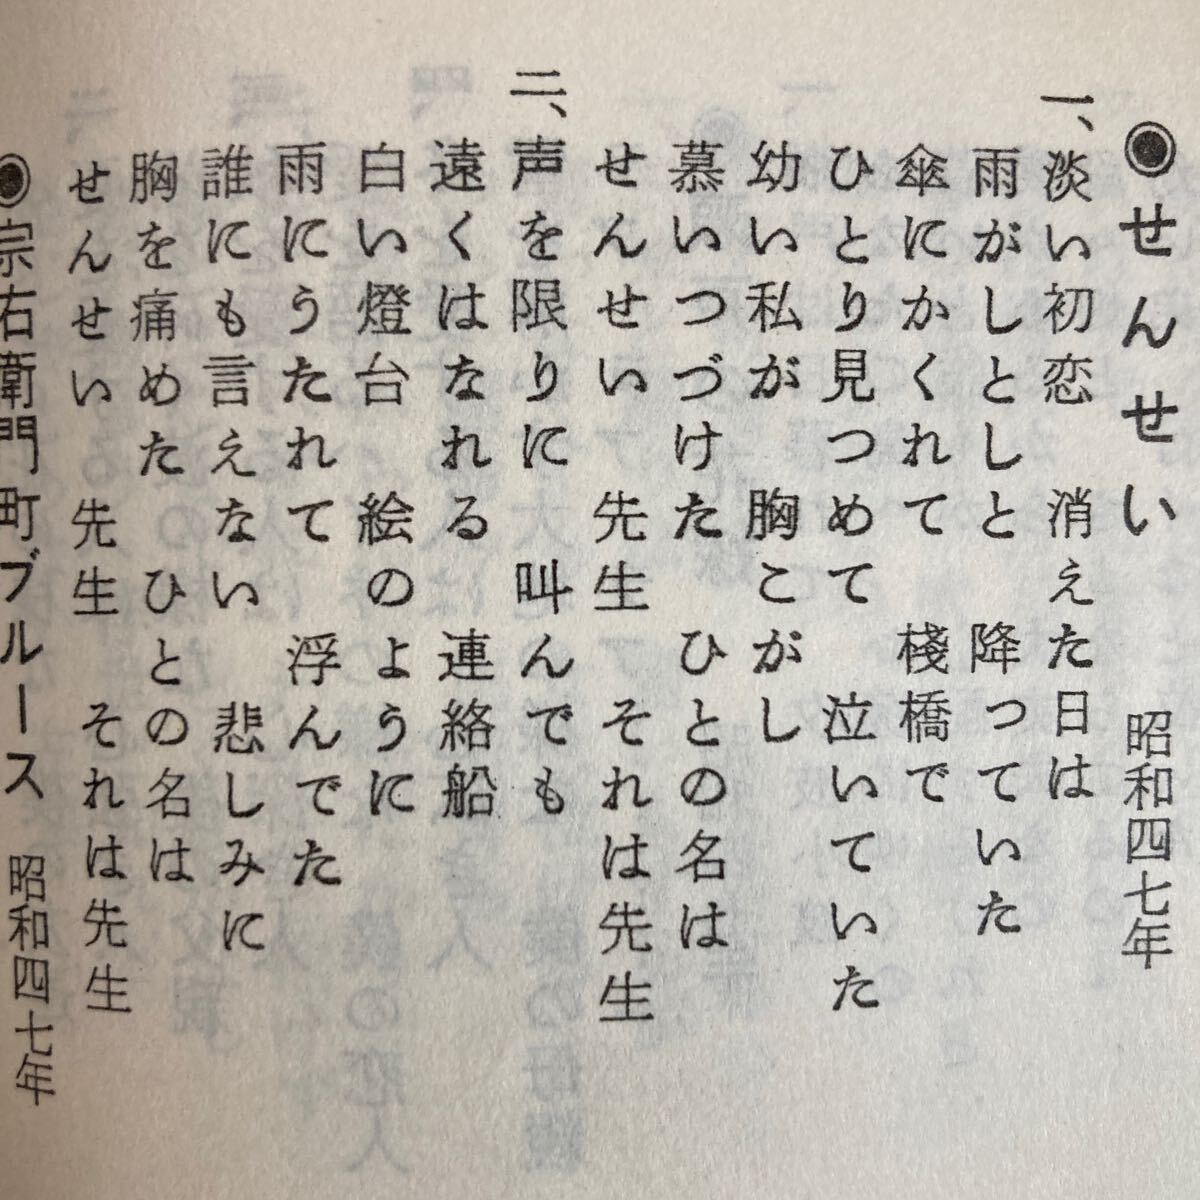 ◉せんせい 昭和四七年
一、淡い初恋 消えた日は
雨がしとしと 降っていた
傘にかくれて 棧橋で
ひとり見つめて 泣いていた
幼い私が 胸こがし
慕いつづけた ひとの名は
せんせい 先生 それは先生
二、声を限りに 叫んでも
遠くはなれる 連絡船
白い燈台 絵のように
雨にうたれて 浮んでた
誰にも言えない 悲しみに
胸を痛めた ひとの名は
せんせい 先生 それは先生
◉宗右衛門町ブルース 昭和四七年